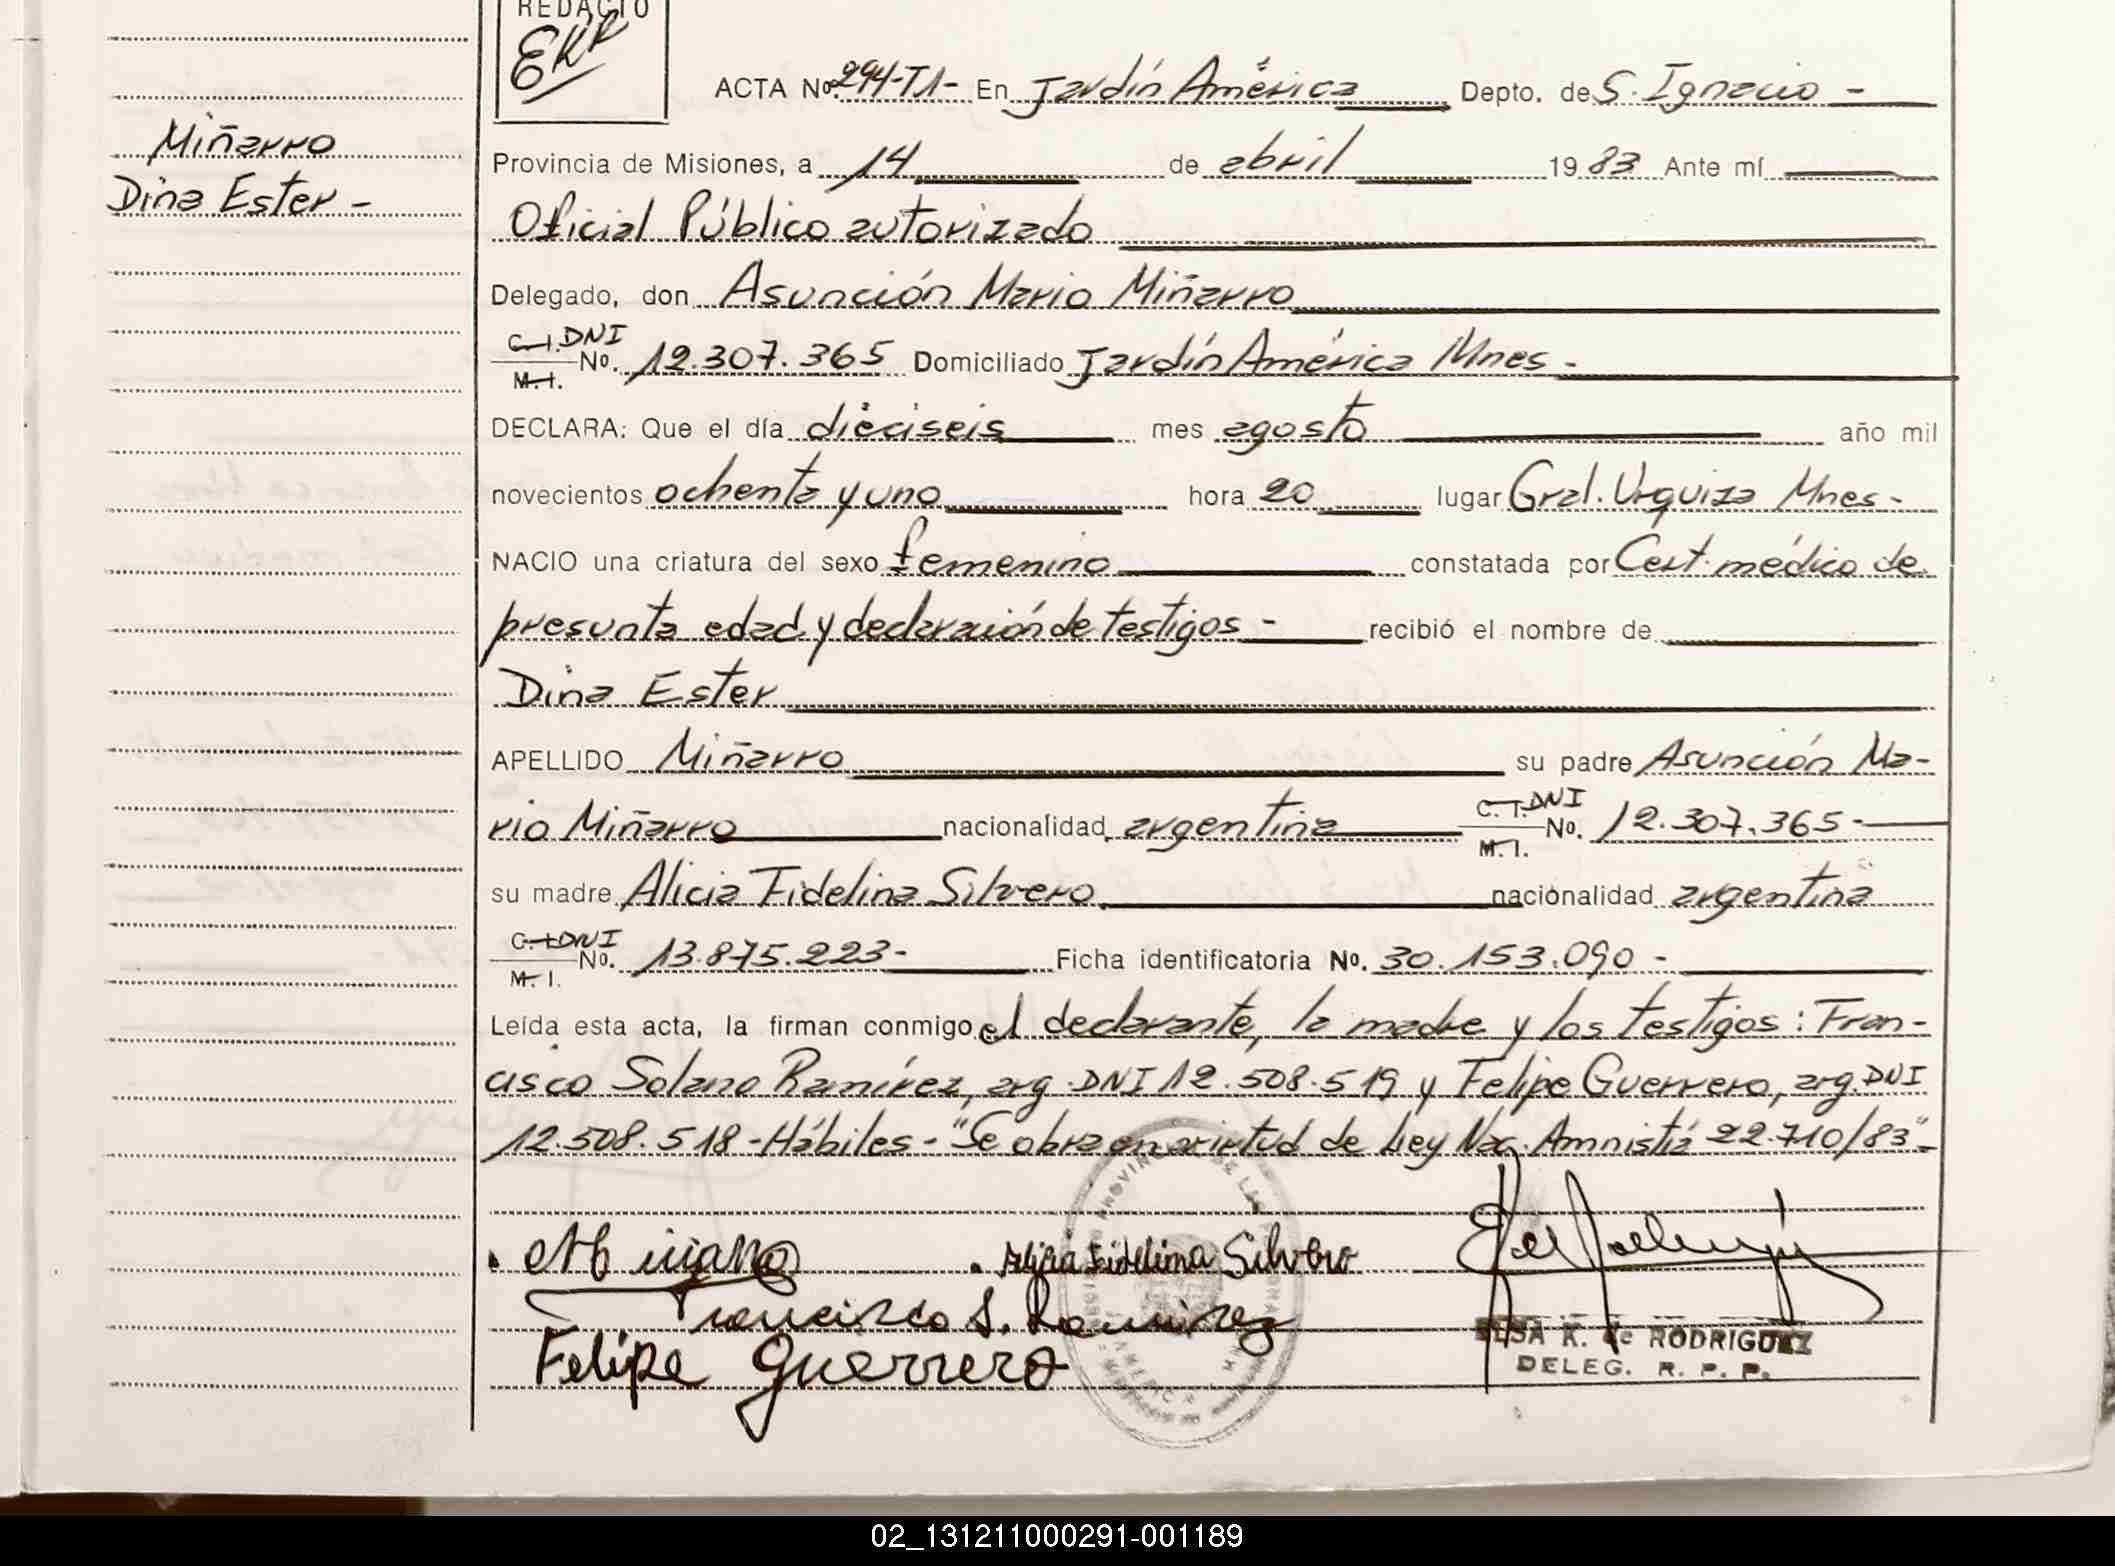 REDACTO
EKR
ACTA No. 294-T1- En Jardín América Depto. de S. Ignacio -
Miñarro
Dina Ester -
Provincia de Misiones, a 14 de abril 1983 Ante mí
Oficial Público autorizado
Delegado, don Asunción Mario Miñarro
C.I. DNI
M.I. No. 12.307.365 Domiciliado Jardín América Mnes -
DECLARA: Que el día dieciseis mes agosto año mil
novecientos ochenta y uno hora 20 lugar Gral. Urquiza Mnes -
NACIO una criatura del sexo femenino constatada por Cert. médico de
presunta edad y declaración de testigos - recibió el nombre de
Dina Ester
APELLIDO Miñarro su padre Asunción Ma-
rio Miñarro nacionalidad argentina C.I. DNI M.I. No. 12.307.365-
su madre Alicia Fidelina Silvero nacionalidad argentina
C.I. DNI M.I. No. 13.875.223- Ficha identificatoria No. 30.153.090 -
Leída esta acta, la firman conmigo el declarante, la madre y los testigos: Fran-
cisco Solano Ramírez, arg. DNI 12.508.519 y Felipe Guerrero, arg. DNI
12.508.518 - Hábiles - "Se obra en virtud de Ley Nac. Amnistía 22.710/83"-
Alicia Fidelina Silvero
Francisco S. Ramirez
Felipe Guerrero
ELSA K. de RODRIGUEZ
DELEG. R. P. P.
02_131211000291-001189